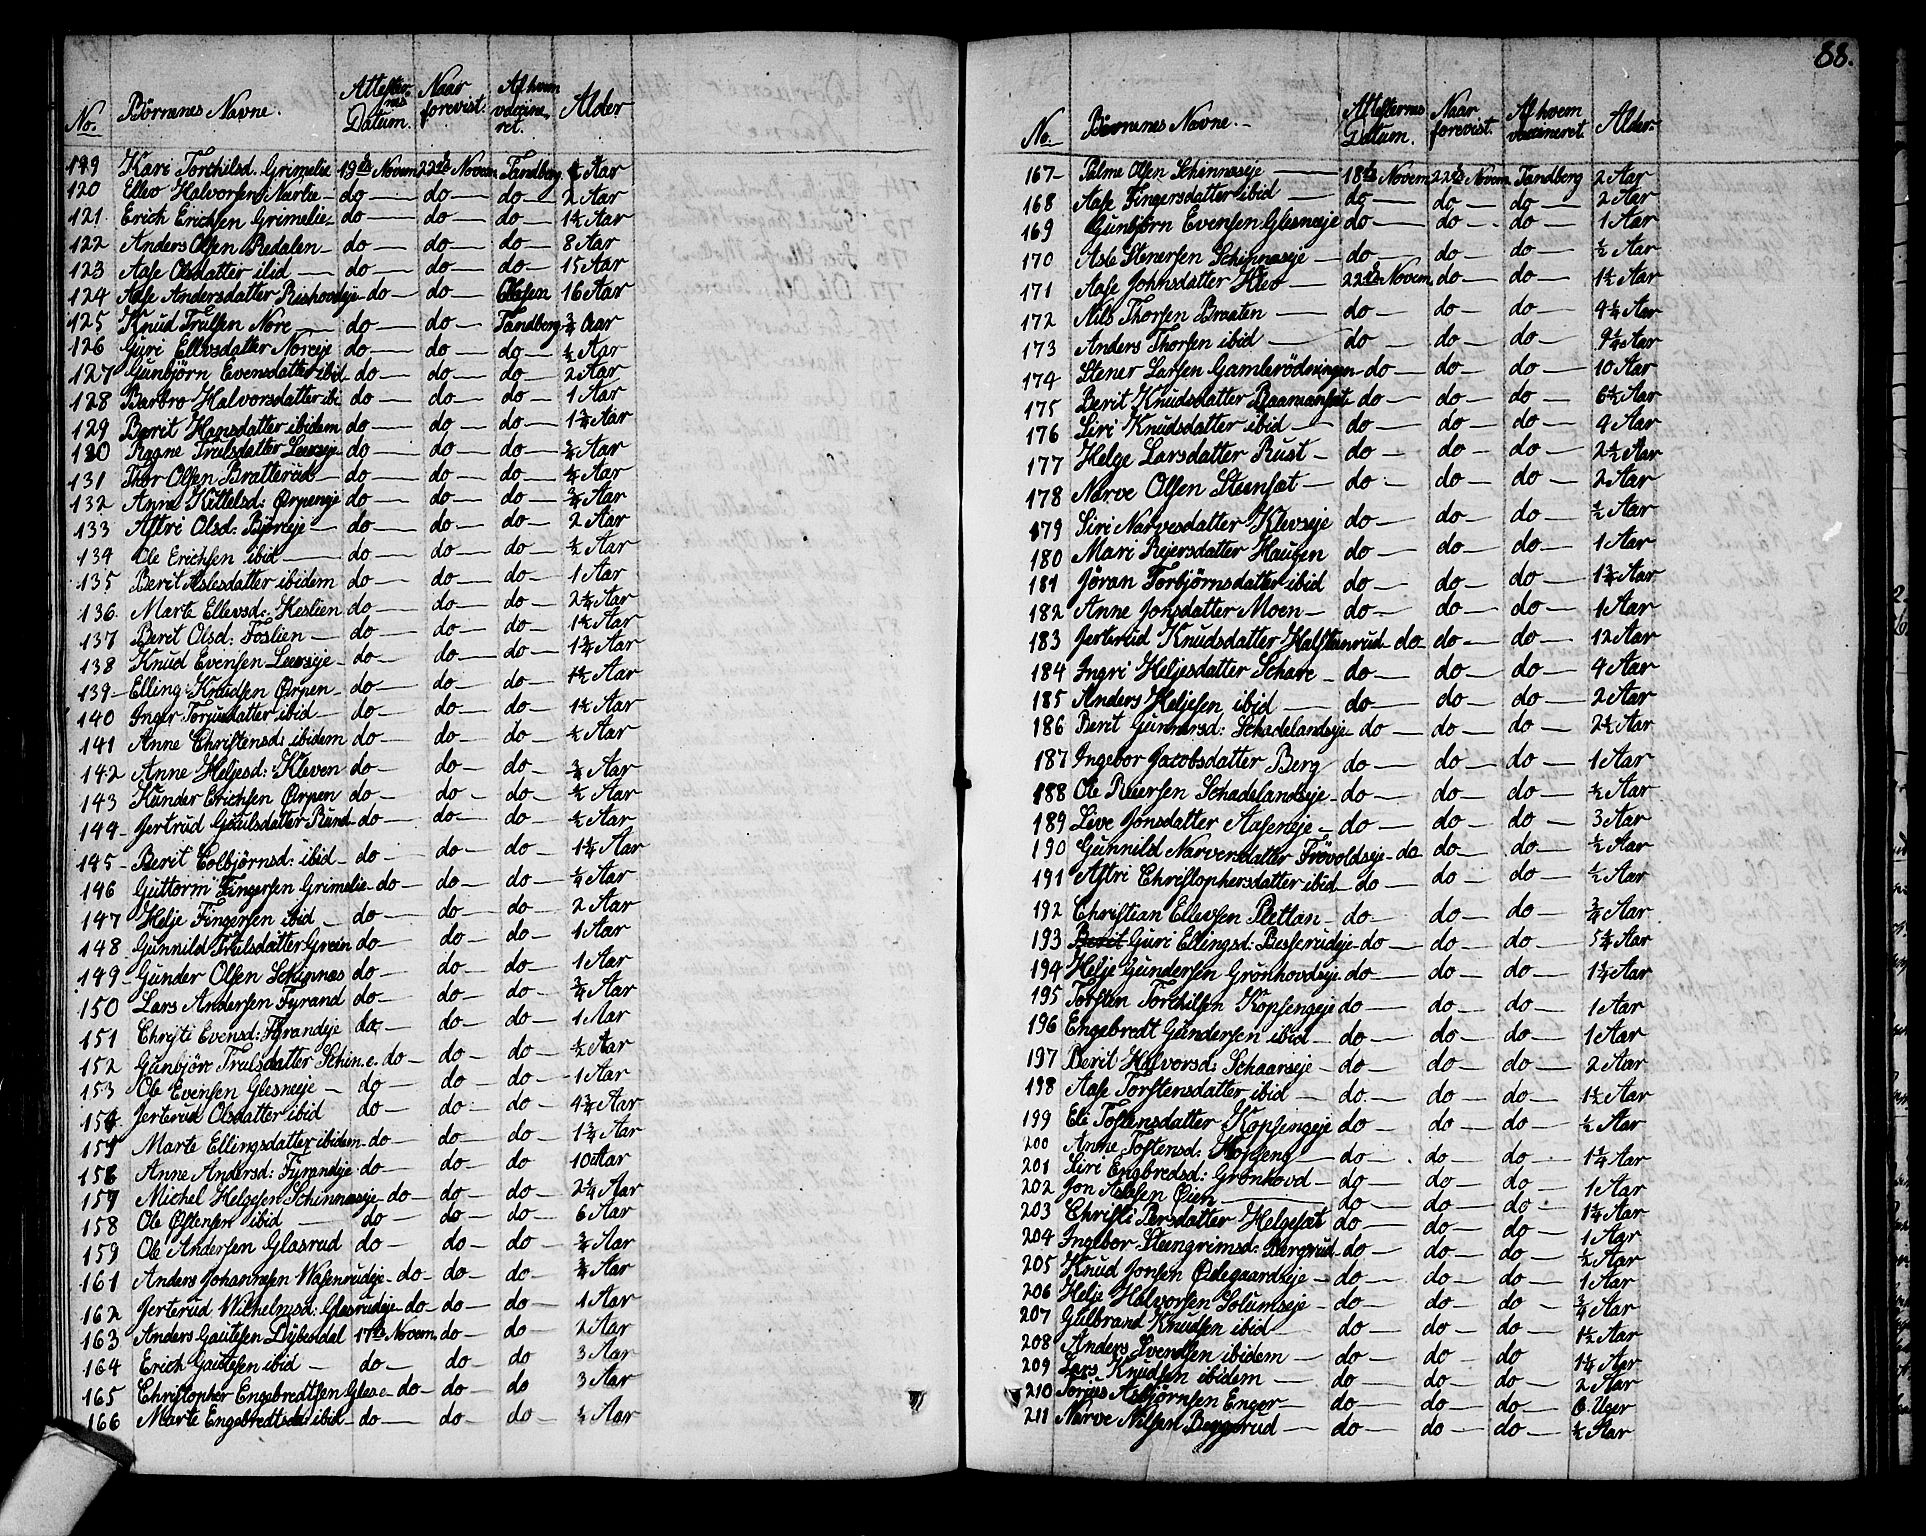 No. Börnenes Navne. Attesternes Datum. Naar forevist. Af hvem vaccineret. Alder
119 Kari Torchilsd. Grimelie 19de Novem 22de Novem Tandberg Aar
120 Ellev Halvorsen Nærlie do do do 2 Aar
121. Erich Erichsen Grimelie do do do 1½ Aar
122 Anders Olsen Bedalen do do do 8 Aar
123 Aase Olsdatter ibid do do do 15 Aar
124 Aase Andersdatter Rishovdeje do do Olsen 16 Aar
125 Knud Trulsen Nore do do Tandberg ¾ Aar
126 Guri Ellevsdatter Noreje do do do ½ Aar
127 Gunbjörn Evensdatter ibid do do do 2 Aar
128 Barbro Halvorsdatter ibi do do do 1 Aar
129 Berit Hansdatter ibidem do do do 1¾ Aar
130 Ragne Trulsdatter Leerseje do do do ¾ Aar
131 Thor Olsen Bratterud do do do ¼ Aar
132 Anne Kittelsd: Ørpeneje do do do ¾ Aar
133 Astri Olsd: Björeeje do do do 2 Aar
134 Ole Erichsen ibid do do do ½ Aar
135 Berit Aslesdatter ibidem do do do 1 Aar
136. Marte Ellevsd: Heslien do do do 2¼ Aar
137 Berit Olsd: Foslien do do do 1½ Aar
138 Knud Evensen Leerseje do do do 1¾ Aar
139 Elling Knudsen Ørpen do do do 1½ Aar
140 Inger Torjusdatter ibid do do do 1½ Aar
141 Anne Christensd: ibidem do do do ½ Aar
142 Anne Heljesd: Kleven do do do ¾ Aar
143 Gunder Erichsen Ørpen do do do ½ Aar
144 Jertrud Gaulsdatter Rund do do do ½ Aar
145 Berit Colbjörnsd: ibid do do do 1¼ Aar
146 Guttorm Fingersen Grimelie do do do ¼ Aar
147 Helje Fingersen ibid do do do 2 Aar
148 Gunnild Trulsdatter Green do do do 1 Aar
149 Gunder Olsen Schinnes do do do 1 Aar
150 Lars Andersen Fyrand do do do ¾ Aar
151 Christi Evensd: Fyrandeje do do do 1 Aar
152 Gunbjör Trulsdatter Schin.e. do do do ½ Aar
153 Ole Evensen Glesneeje do do do 1 Aar
154. Jerterud Olsdatter ibid do do do 4¾ Aar
155 Marte Ellingsdatter ibidem do do do 1¾ Aar
156 Anne Andersd: Fyrandeje do do do 10 Aar
157 Michel Helgesen Schinnesseje do do do 2¼ Aar
158 Ole Østensen ibid do do do 6 Aar
159 Ole Andersen Glasrud do do do ¾ Aar
161 Anders Johannesen Wasenrudeje do do do ¾ Aar
162 Jerterud Wilhelmsd: Glasrudeje do do do 1 Aar
163 Anders Gautesen Dybendal 17de Novem. do do 2 Aar
164 Erich Gautesen ibid do do do 3 Aar
165 Christopher Engebredtsen Glese do do do 3 Aar
166 Marte Engebredtsd: ibid do do do ½ Aar
88.
No. Börnenes Navne. Attesternes Datum. Naar forevist. Af hvem vaccineret. Alder.
167 Palme Olsen Schinneseje 18de Novem 22de Novem. Tandberg 2 Aar
168 Aase Fingersdatter ibid do do do 2 Aar
169 Gunbjörn Evensen Glesneeje do do do 1 Aar
170 Asle Stenersen Schinneseje do do do ½ Aar
171 Aase Johnsdatter Klev 22de Novem. do do 1½ Aar
172 Nils Thorsen Braaten do do do 4¼ Aar
173 Anders Thorsen ibid do do do 9¼ Aar
174 Stener Larsen Gamlerödningen do do do 10 Aar
175 Berit Knudsdatter Raamanset do do do 6½ Aar
176 Siri Knudsdatter ibid do do do 4 Aar
177 Helge Larsdatter Rust do do do 2½ Aar
178 Narve Olsen Steenset do do do 2 Aar
179 Siri Narvesdatter Klevseje do do do ½ Aar
180 Mari Rejersdatter Haugen do do do 1 Aar
181 Jöran Torbjörnsdatter ibid do do do 1¾ Aar
182 Anne Jonsdatter Moen do do do 1 Aar
183 Jerterud Knudsdatter Halstenrud do do do 12 Aar
184 Ingri Heljesdatter Schare do do do 4 Aar
185 Anders Heljesen ibid do do do 2 Aar
186 Berit Gunnersd: Schadelandseje do do do 2½ Aar
187 Ingebor Jacobsdatter Berg do do do 1 Aar
188 Ole Reersen Schadelandseje do do do ½ Aar
189 Live Jonsdatter Aaseneje do do do 3 Aar
190 Gunnild Narvesdatter Frövoldseje do do do ½ Aar
191 Astri Christophersdatter ibid do do do ½ Aar
192 Christian Ellevsen Plettan do do do ¾ Aar
193 Berit Guri Ellingsd: Besserudeje do do do 5¾ Aar
194 Helje Gundersen Grönhovdseje do do do 1¼ Aar
195 Torsten Torchilsen Kopsengeje do do do 1 Aar
196 Engebredt Gundersen ibid do do do 1 Aar
197 Berit Halvorsd: Schaarseje do do do 2 Aar
198 Aase Torstensdatter ibid do do do 1½ Aar
199 Eli Tostensdatter Kopsengeje do do do ½ Aar
200 Anne Tostensd: Kopseng do do do 1¼ Aar
201 Siri Engebredsd: Grönhovd do do do 1 Aar
202 Jon Aslesen Øien do do do 1¼ Aar
203 Christi Persdatter Helgeset do do do 1 Aar
204 Ingebor Steengrimsd: Bergrud do do do ½ Aar
205 Knud Jonsen Ødegaardseje do do do 1 Aar
206 Helje Halvorsen Solumseje do do do ¾ Aar
207 Gulbrand Knudsen ibid do do do 1½ Aar
208 Anders Svendsen ibidem do do do 1¼ Aar
209 Lars Knudsen ibidem do do do 2 Aar
210 Torjus Asbjörnsen Enger do do do 6 Uger
211 Narve Nilsen Beggerud do do do ½ Aar